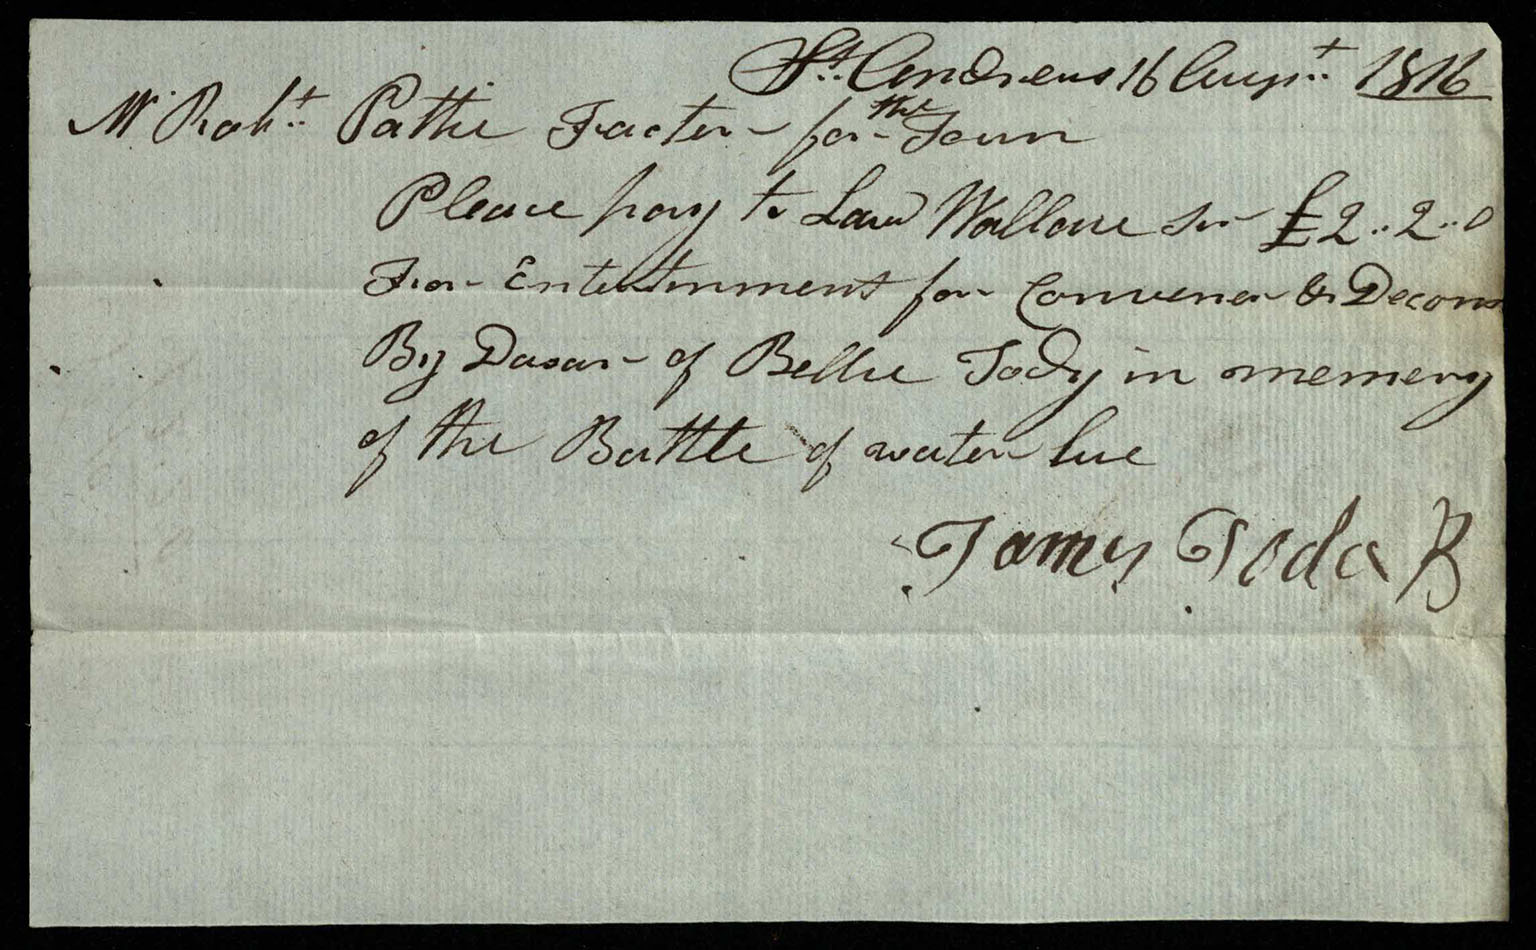 St. Andrews 16 Augst. 1816
Mr Robt. Pattie Facter for the Toun
Please pay to Laud Wallace Sr £2..2..0
For Entertinment for Convener & Decons
By Dasar of Bellie Tody in memery
of the Battle of water lue
James Todd B